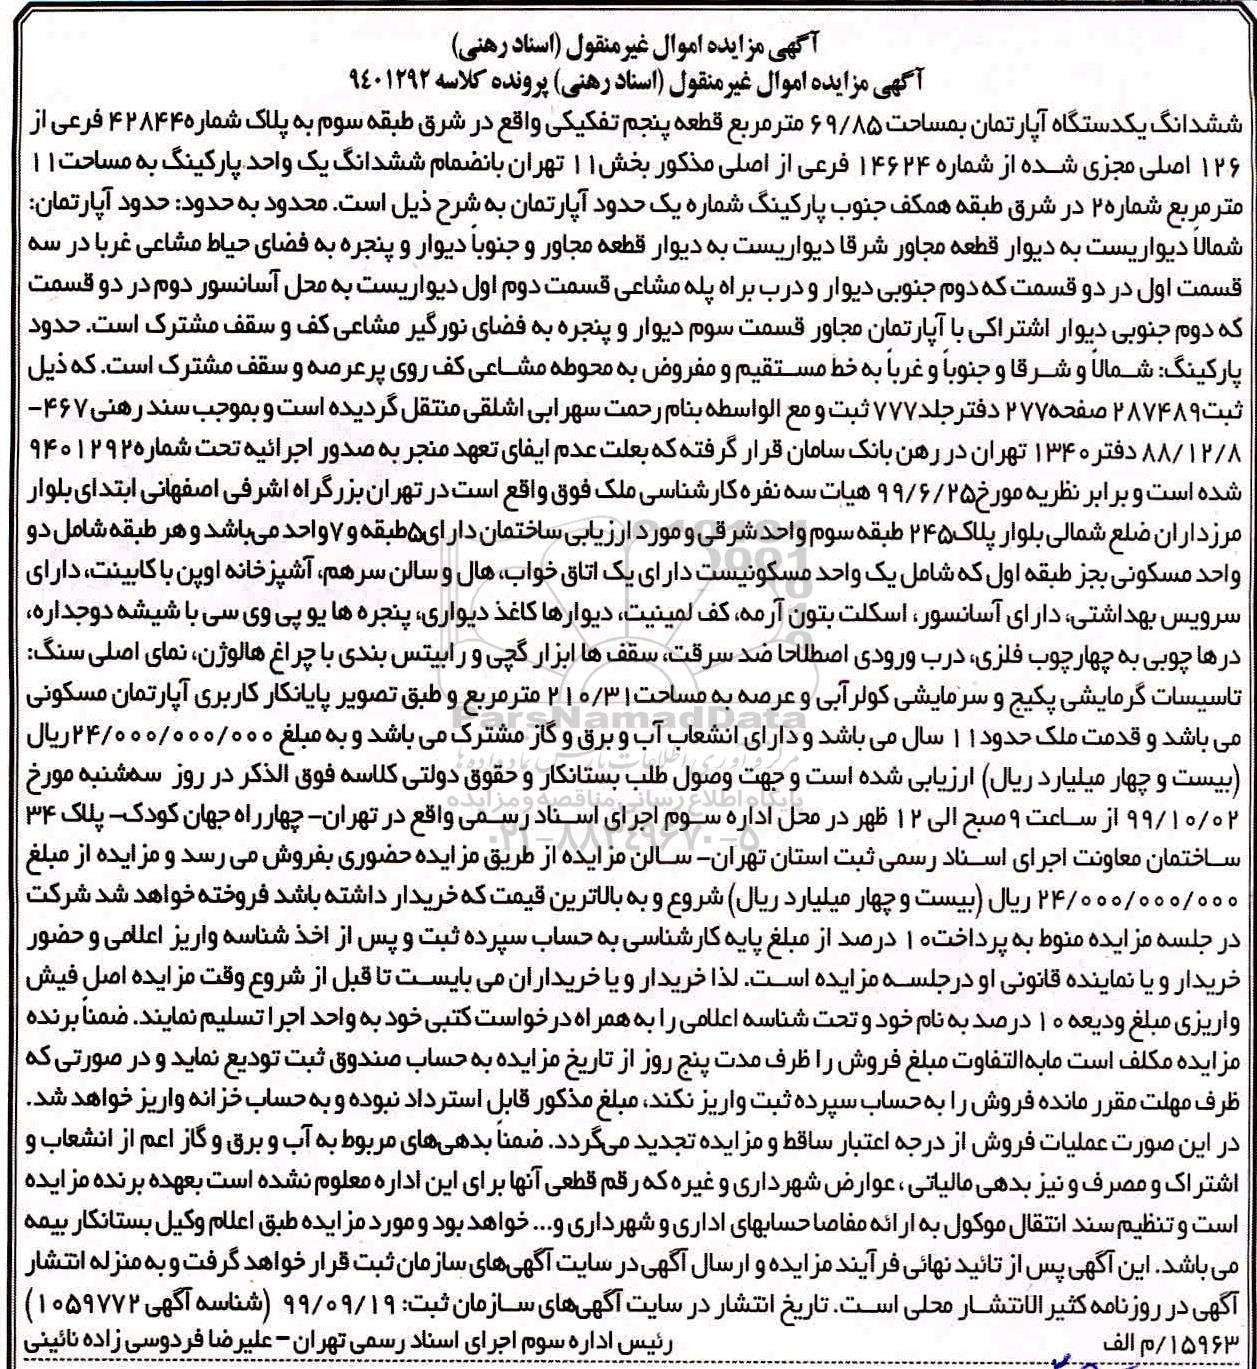 آگهی مزایده اموال غیرمنقول (اسناد رهنی)
آگهی مزایده اموال غیرمنقول (اسناد رهنی) پرونده کلاسه ۹۴۰۱۲۹۲
ششدانگ یکدستگاه آپارتمان بمساحت ۶۹/۸۵ مترمربع قطعه پنجم تفکیکی واقع در شرق طبقه سوم به پلاک شماره۴۲۸۴۴ فرعی از
۱۲۶ اصلی مجزی شده از شماره ۱۴۶۲۴ فرعی از اصلی مذکور بخش۱۱ تهران بانضمام ششدانگ یک واحد پارکینگ به مساحت۱۱
مترمربع شماره۲ در شرق طبقه همکف جنوب پارکینگ شماره یک حدود آپارتمان به شرح ذیل است. محدود به حدود: حدود آپارتمان:
شمالاً دیواریست به دیوار قطعه مجاور شرقا دیواریست به دیوار قطعه مجاور و جنوباً دیوار و پنجره به فضای حیاط مشاعی غربا در سه
قسمت اول در دو قسمت که دوم جنوبی دیوار و درب براه پله مشاعی قسمت دوم اول دیواریست به محل آسانسور دوم در دو قسمت
که دوم جنوبی دیوار اشتراکی با آپارتمان مجاور قسمت سوم دیوار و پنجره به فضای نورگیر مشاعی کف و سقف مشترک است. حدود
پارکینگ: شمالاً و شرقا و جنوباً و غرباً به خط مستقیم و مفروض به محوطه مشاعی کف روی پر عرصه و سقف مشترک است. که ذیل
ثبت۲۸۷۴۸۹ صفحه۲۷۷ دفتر جلد۷۷۷ ثبت و مع الواسطه بنام رحمت سهرابی اشلقی منتقل گردیده است و بموجب سند رهنی ۴۶۷-
۸۸/۱۲/۸ دفتر۱۳۴۰ تهران در رهن بانک سامان قرار گرفته که بعلت عدم ایفای تعهد منجر به صدور اجرائیه تحت شماره۹۴۰۱۲۹۲
شده است و برابر نظریه مورخ۹۹/۶/۲۵ هیات سه نفره کارشناسی ملک فوق واقع است در تهران بزرگراه اشرفی اصفهانی ابتدای بلوار
مرزداران ضلع شمالی بلوار پلاک۲۴۵ طبقه سوم واحد شرقی و مورد ارزیابی ساختمان دارای۵طبقه و ۷واحد می‌باشد و هر طبقه شامل دو
واحد مسکونی بجز طبقه اول که شامل یک واحد مسکونیست دارای یک اتاق خواب، هال و سالن سرهم، آشپزخانه اوپن با کابینت، دارای
سرویس بهداشتی، دارای آسانسور، اسکلت بتون آرمه، کف لمینیت، دیوارها کاغذ دیواری، پنجره ها یو پی وی سی با شیشه دوجداره،
درها چوبی به چهارچوب فلزی، درب ورودی اصطلاحا ضد سرقت، سقف ها ابزار گچی و رابیتس بندی با چراغ هالوژن، نمای اصلی سنگ:
تاسیسات گرمایشی پکیج و سرمایشی کولرآبی و عرصه به مساحت۲۱۰/۳۱ مترمربع و طبق تصویر پایانکار کاربری آپارتمان مسکونی
می باشد و قدمت ملک حدود۱۱ سال می باشد و دارای انشعاب آب و برق و گاز مشترک می باشد و به مبلغ ۲۴/۰۰۰/۰۰۰/۰۰۰ریال
(بیست و چهار میلیارد ریال) ارزیابی شده است و جهت وصول طلب بستانکار و حقوق دولتی کلاسه فوق الذکر در روز سه‌شنبه مورخ
۹۹/۱۰/۰۲ از ساعت ۹صبح الی ۱۲ ظهر در محل اداره سوم اجرای اسناد رسمی واقع در تهران- چهارراه جهان کودک- پلاک ۳۴
ساختمان معاونت اجرای اسناد رسمی ثبت استان تهران- سالن مزایده از طریق مزایده حضوری بفروش می رسد و مزایده از مبلغ
۲۴/۰۰۰/۰۰۰/۰۰۰ ریال (بیست و چهار میلیارد ریال) شروع و به بالاترین قیمت که خریدار داشته باشد فروخته خواهد شد شرکت
در جلسه مزایده منوط به پرداخت۱۰ درصد از مبلغ پایه کارشناسی به حساب سپرده ثبت و پس از اخذ شناسه واریز اعلامی و حضور
خریدار و یا نماینده قانونی او درجلسه مزایده است. لذا خریدار و یا خریداران می بایست تا قبل از شروع وقت مزایده اصل فیش
واریزی مبلغ ودیعه ۱۰ درصد به نام خود و تحت شناسه اعلامی را به همراه درخواست کتبی خود به واحد اجرا تسلیم نمایند. ضمناً برنده
مزایده مکلف است مابه‌التفاوت مبلغ فروش را ظرف مدت پنج روز از تاریخ مزایده به حساب صندوق ثبت تودیع نماید و در صورتی که
ظرف مهلت مقرر مانده فروش را به حساب سپرده ثبت واریز نکند، مبلغ مذکور قابل استرداد نبوده و به حساب خزانه واریز خواهد شد.
در این صورت عملیات فروش از درجه اعتبار ساقط و مزایده تجدید می‌گردد. ضمناً بدهی‌های مربوط به آب و برق و گاز اعم از انشعاب و
اشتراک و مصرف و نیز بدهی مالیاتی ، عوارض شهرداری و غیره که رقم قطعی آنها برای این اداره معلوم نشده است بعهده برنده مزایده
است و تنظیم سند انتقال موکول به ارائه مفاصا حسابهای اداری و شهرداری و... خواهد بود و مورد مزایده طبق اعلام وکیل بستانکار بیمه
می باشد. این آگهی پس از تائید نهائی فرآیند مزایده و ارسال آگهی در سایت آگهی‌های سازمان ثبت قرار خواهد گرفت و به منزله انتشار
آگهی در روزنامه کثیر الانتشار محلی است. تاریخ انتشار در سایت آگهی‌های سازمان ثبت: ۹۹/۰۹/۱۹ (شناسه آگهی ۱۰۵۹۷۷۲)
۱۵۹۶۳/م الف رئیس اداره سوم اجرای اسناد رسمی تهران - علیرضا فردوسی زاده نائینی
ParsNamadData
پایگاه اطلاع رسانی مناقصه و مزایده
۰۲۱-۸۸۳۴۹۶۷۰-۵